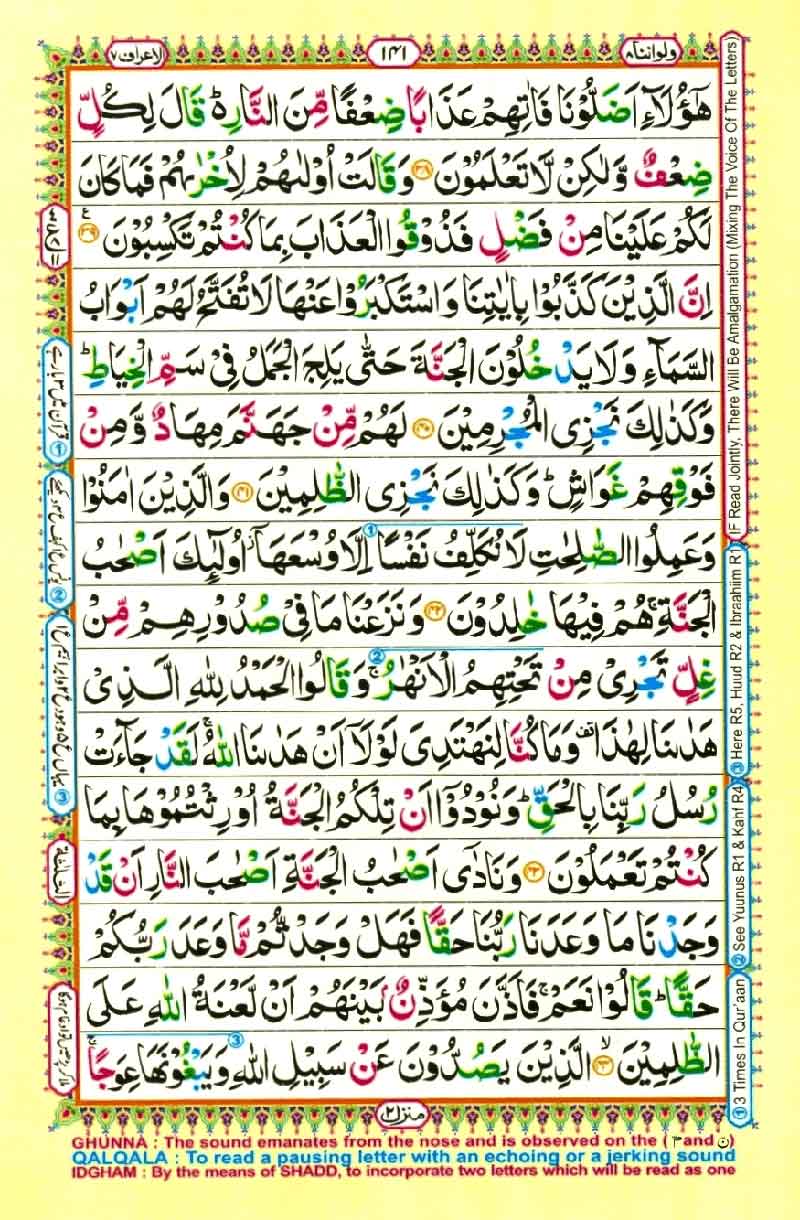 ولواننا۸
۱۴۱
الاعراف۷
هٰۤؤُلَآءِ اَضَلُّوْنَا فَاٰتِهِمْ عَذَابًا ضِعْفًا مِّنَ النَّارِ ؕ۬ قَالَ لِكُلٍّ
ضِعْفٌ وَّلٰكِنْ لَّا تَعْلَمُوْنَ ﴿۳۸﴾ وَقَالَتْ اُوْلٰىهُمْ لِاُخْرٰىهُمْ فَمَا كَانَ
لَكُمْ عَلَيْنَا مِنْ فَضْلٍ فَذُوْقُوا الْعَذَابَ بِمَا كُنْتُمْ تَكْسِبُوْنَ ﴿۳۹﴾ ع
اِنَّ الَّذِيْنَ كَذَّبُوْا بِاٰيٰتِنَا وَاسْتَكْبَرُوْا عَنْهَا لَا تُفَتَّحُ لَهُمْ اَبْوَابُ
السَّمَآءِ وَلَا يَدْخُلُوْنَ الْجَنَّةَ حَتّٰى يَلِجَ الْجَمَلُ فِىْ سَمِّ الْخِيَاطِ ؕ
وَكَذٰلِكَ نَجْزِى الْمُجْرِمِيْنَ ﴿۴۰﴾ لَهُمْ مِّنْ جَهَنَّمَ مِهَادٌ وَّمِنْ
فَوْقِهِمْ غَوَاشٍ ؕ وَكَذٰلِكَ نَجْزِى الظّٰلِمِيْنَ ﴿۴۱﴾ وَالَّذِيْنَ اٰمَنُوْا
وَعَمِلُوا الصّٰلِحٰتِ لَا نُكَلِّفُ نَفْسًا اِلَّا وُسْعَهَاۤ ؗ اُولٰٓئِكَ اَصْحٰبُ
الْجَنَّةِ ۚ هُمْ فِيْهَا خٰلِدُوْنَ ﴿۴۲﴾ وَنَزَعْنَا مَا فِىْ صُدُوْرِهِمْ مِّنْ
غِلٍّ تَجْرِىْ مِنْ تَحْتِهِمُ الْاَنْهٰرُ ۚ وَقَالُوا الْحَمْدُ لِلّٰهِ الَّذِىْ
هَدٰىنَا لِهٰذَا ࣞ وَمَا كُنَّا لِنَهْتَدِىَ لَوْلَاۤ اَنْ هَدٰىنَا اللّٰهُ ۚ لَقَدْ جَآءَتْ
رُسُلُ رَبِّنَا بِالْحَقِّ ؕ وَنُوْدُوْۤا اَنْ تِلْكُمُ الْجَنَّةُ اُوْرِثْتُمُوْهَا بِمَا
كُنْتُمْ تَعْمَلُوْنَ ﴿۴۳﴾ وَنَادٰٓى اَصْحٰبُ الْجَنَّةِ اَصْحٰبَ النَّارِ اَنْ قَدْ
وَجَدْنَا مَا وَعَدَنَا رَبُّنَا حَقًّا فَهَلْ وَجَدْتُّمْ مَّا وَعَدَ رَبُّكُمْ
حَقًّا ؕ قَالُوْا نَعَمْ ۚ فَاَذَّنَ مُؤَذِّنٌۢ بَيْنَهُمْ اَنْ لَّعْنَةُ اللّٰهِ عَلَى
الظّٰلِمِيْنَ ﴿۴۴﴾ الَّذِيْنَ يَصُدُّوْنَ عَنْ سَبِيْلِ اللّٰهِ وَيَبْغُوْنَهَا عِوَجًا ۚ
منزل۲
IF Read Jointly, There Will Be Amalgamation (Mixing The Voice Of The Letters)
③ Here R5, Huud R2 & Ibraahiim R1
② See Yuunus R1 & Kahf R4
① 3 Times In Qur'aan
GHUNNA : The sound emanates from the nose and is observed on the ( م and ن)
QALQALA : To read a pausing letter with an echoing or a jerking sound
IDGHAM : By the means of SHADD, to incorporate two letters which will be read as one